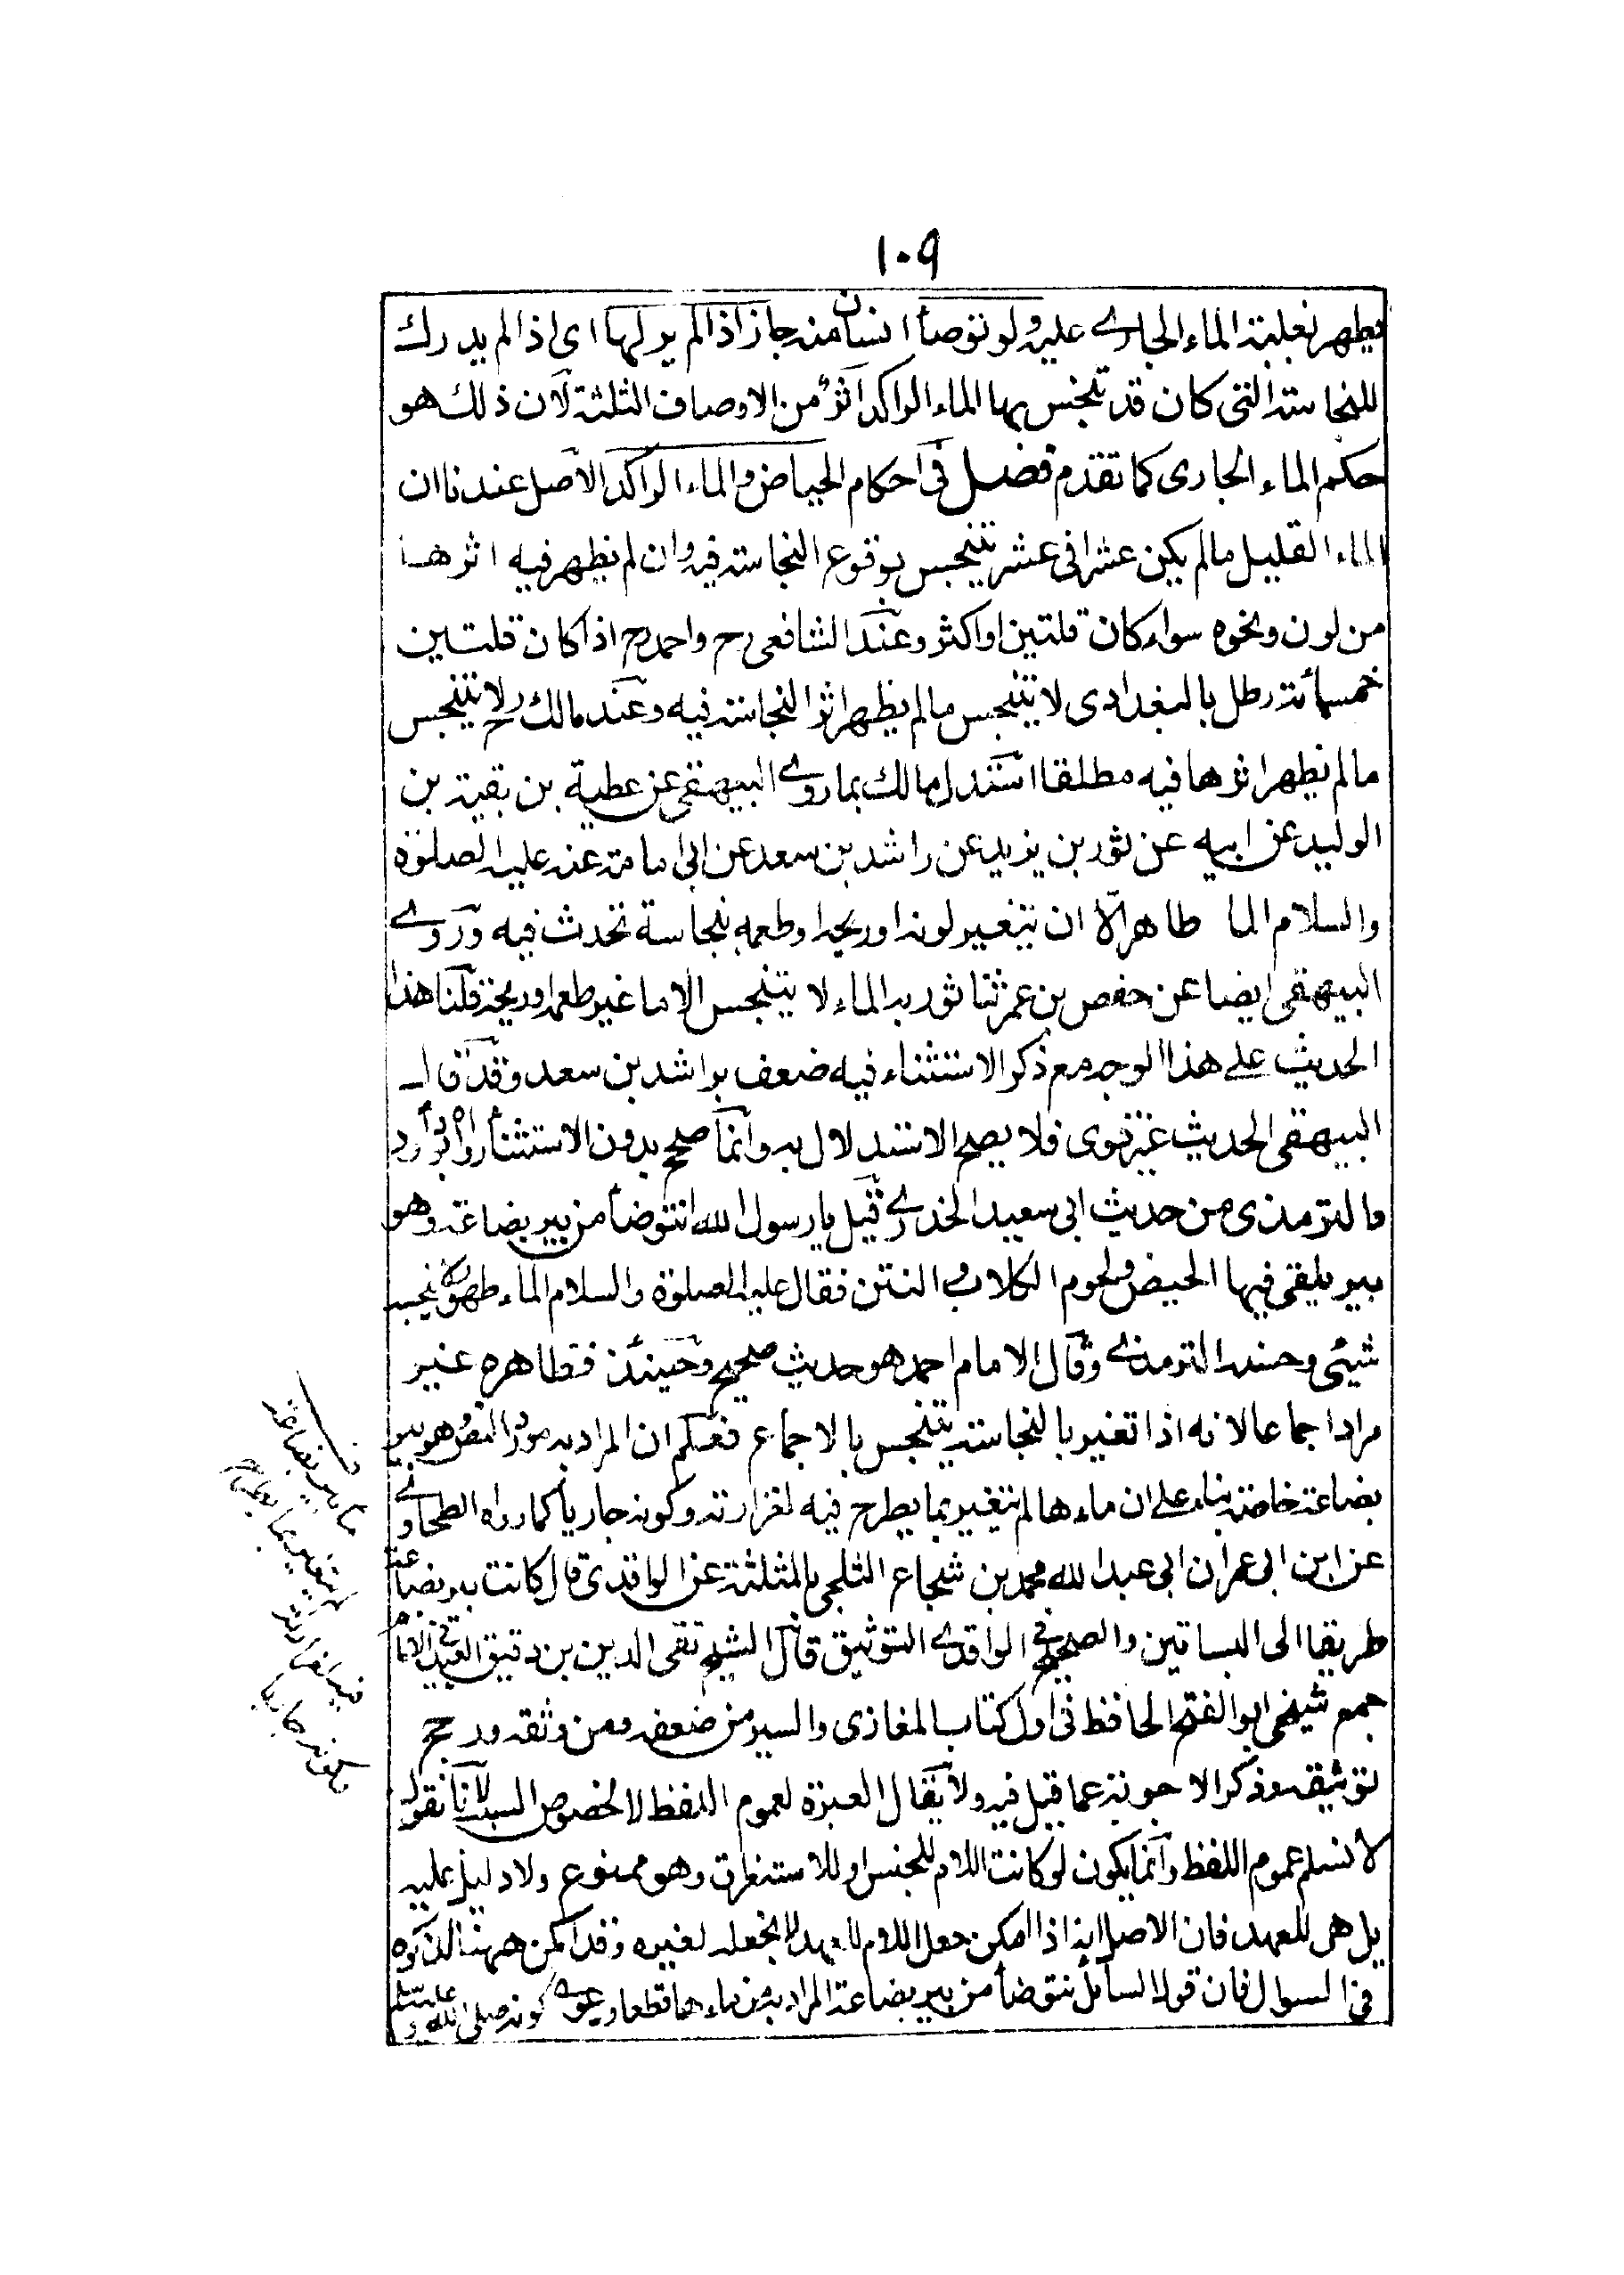 ١٠٩
فيطهر لغلبة الماء الجارى عليه ولو توضأ انسان منه جاز اذا لم ير لها اى اذا لم يدرك
للنجاسة التى كان قد تنجس بها الماء الراكد اثر من الاوصاف الثلثة لان ذلك هو
حكم الماء الجارى كما تقدم فصل فى احكام الحياض والماء الراكد الاصل عندنا ان
الماء القليل مالم يكن عشرا فى عشر يتنجس بوقوع النجاسة فيه وان لم يظهر فيه اثرها
من لون ونحوه سواء كان قلتين او اكثر وعند الشافعى رح واحمد رح اذا كان قلتين
خمسمائة رطل بالبغدادى لا يتنجس مالم يظهر اثر النجاسة فيه وعند مالك رح لا يتنجس
مالم يظهر اثرها فيه مطلقا استدل مالك بما روى البيهقى عن عطية بن بقية بن
الوليد عن ابيه عن ثور بن يزيد عن راشد بن سعد عن ابى امامة عنه عليه الصلوة
والسلام الما طاهر الّا ان تتغير لونه او ريحه او طعمه بنجاسة تحدث فيه وروى
البيهقى ايضا عن حفص بن عمر ثنا ثور به الماء لا يتنجس الا ما غير طعمه او ريحه قلنا هذا
الحديث على هذا الوجه مع ذكر الاستثناء فيه ضعف براشد بن سعد وقد قال
البيهقى الحديث غير قوى فلا يصح الاستدلال به وانما صح بدون الاستثناء رواه ابو داود
والترمذى من حديث ابى سعيد الخدرى قيل يا رسول الله انتوضأ من بير بضاعة وهو
بير يلقى فيها الحيض ولحوم الكلاب و النتن فقال عليه الصلوة والسلام الماء طهور لا ينجسه
شيئى وحسنه الترمذى وقال الامام احمد هو حديث صحيح وحينئذ فظاهره غير
مراد اجماعا لانه اذا تغير بالنجاسة يتنجس بالاجماع فعلم ان المراد به مورد النص وهو بير
بضاعة خاصة بناء على ان ماءها لم يتغير بما يطرح فيه لغزارته وكونه جاريا كما رواه الطحاوى
عن ابن ابى عمران ابى عبد الله محمد بن شجاع الثلجى بالمثلثة عن الواقدى قال كانت بير بضاعة
طريقا الى البساتين والصحيح فى الواقدى التوثيق قال الشيخ تقى الدين بن دقيق العيد فى الامام
جمع شيخى ابو الفتح الحافظ فى اول كتاب المغازى والسير من ضعفه ومن وثقه ورجح
توثيقه وذكر الاجوبة عما قيل فيه ولا يقال العبرة لعموم اللفظ لا لخصوص السبب لانا نقول
لا نسلم عموم اللفظ وانما يكون لو كانت اللام للجنس او للاستغراق وهو ممنوع ولا دليل عليه
بل هى للعهد فان الاصل انه اذا امكن جعل اللام للعهد لا نجعله لغيره وقد امكن ههنا لذكره
فى السوال فان قول السائل نتوضأ من بير بضاعة المراد به من ماءها قطعا كونه صلى الله عليه وسلم
ماء بير بضاعة
لم يتغير بما يطرح
فيه لغزارته
وكونه جاريا